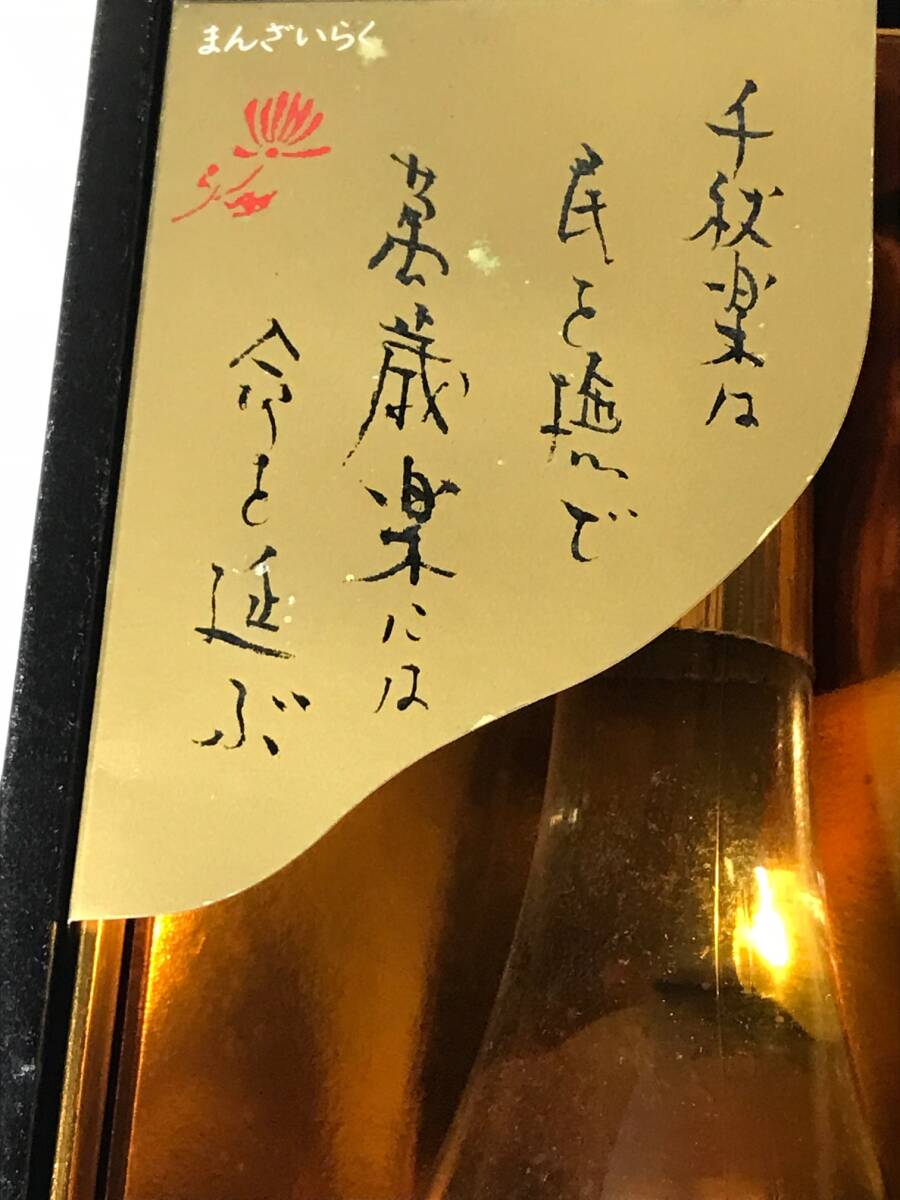 まんざいらく
千秋楽は
民を撫で
萬歳楽には
命を延ぶ